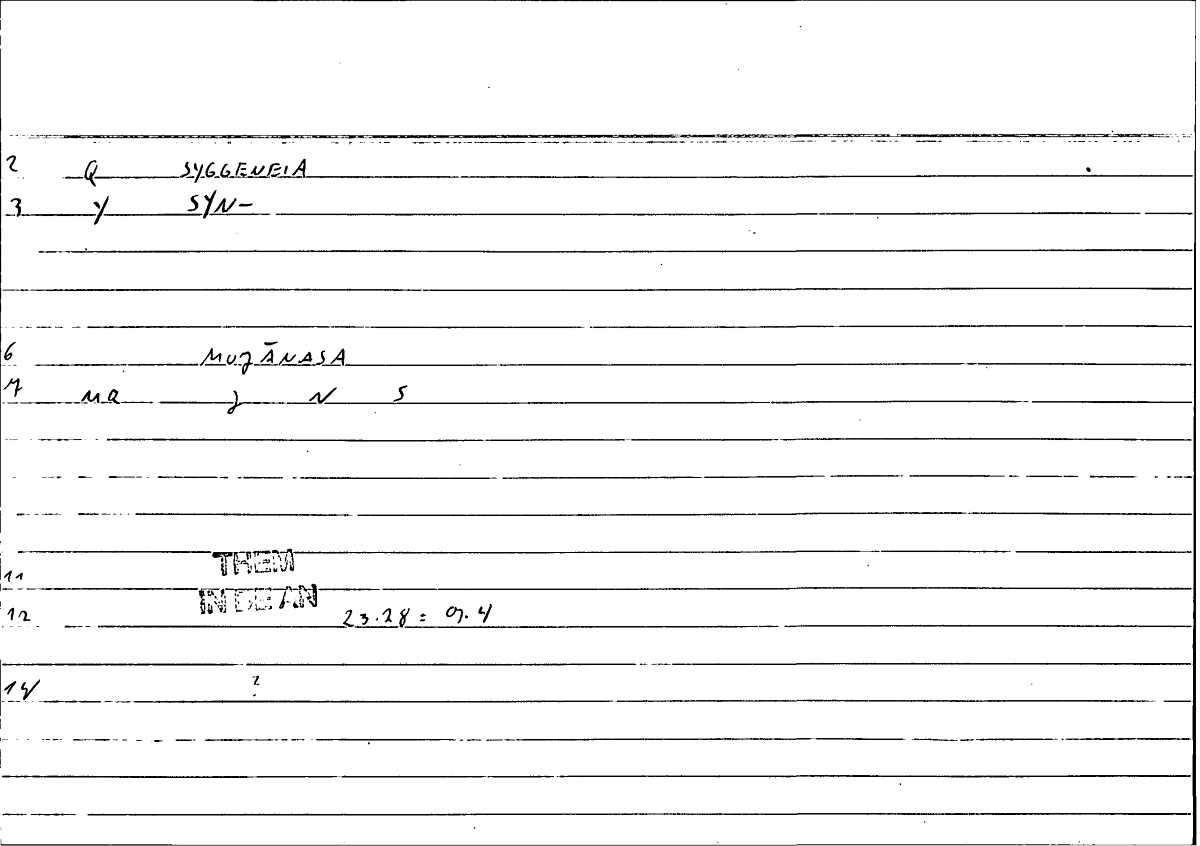 2 Q SYGGENEIA
3 Y SYN-
6 MUJĀNASA
7 MQ J N S
11 THEM
12 IN DE AN 23.28 = 07.4
14 ?